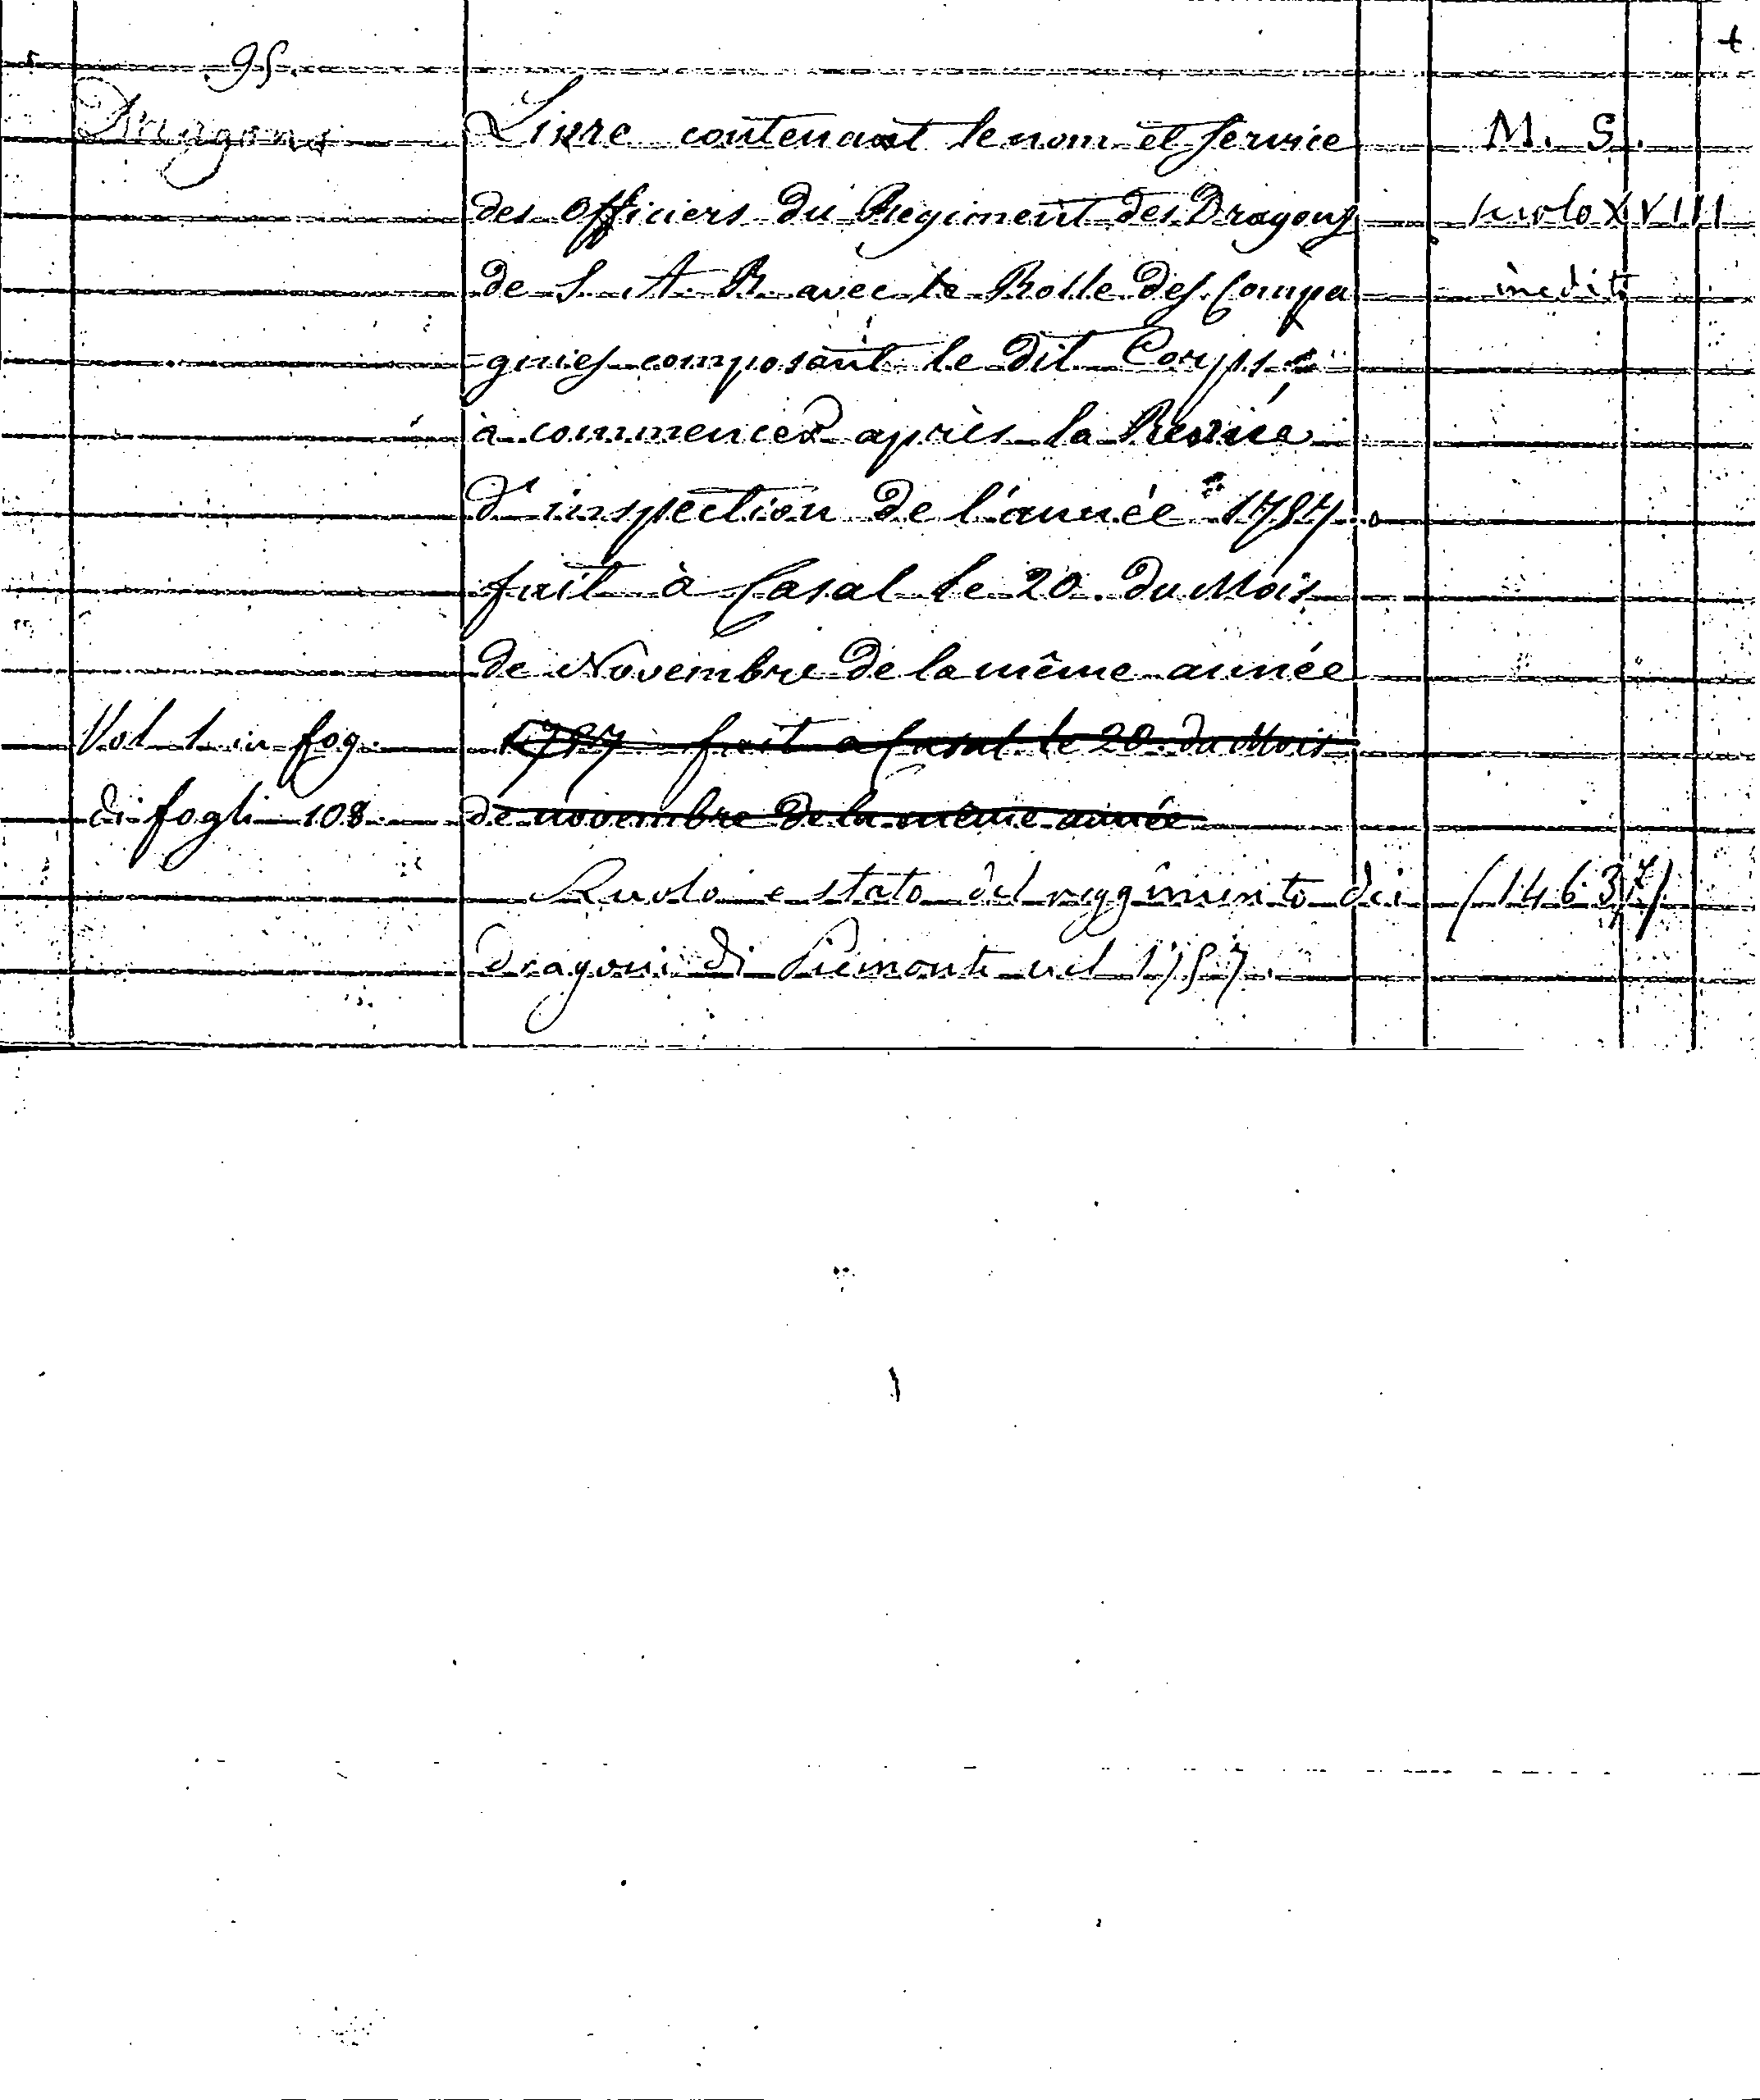 95.
Dragons
Livre contenant le nom et Service M. S.
des Officiers du Regiment des Dragons secolo XVIII
de S. A. R. avec le Rolle des Compa inedito
=gnies composant le dit Corps
à commencer après la Revüe
d'inspection de l'année 1787.
fait à Casal le 20. du Mois
de Novembre de la même année
Vol. 1. in fog. 1787 fait a Casal le 20. du Mois
di fogli 108 de novembre de la même année
Ruolo e stato del reggimento dei (14637)
Dragoni di Piemonte nel 1787.